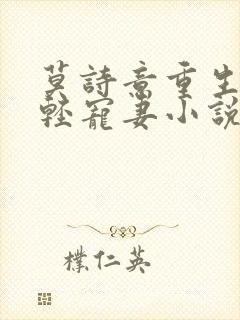 莫詩意重生
輕寵妻小說
樸仁英